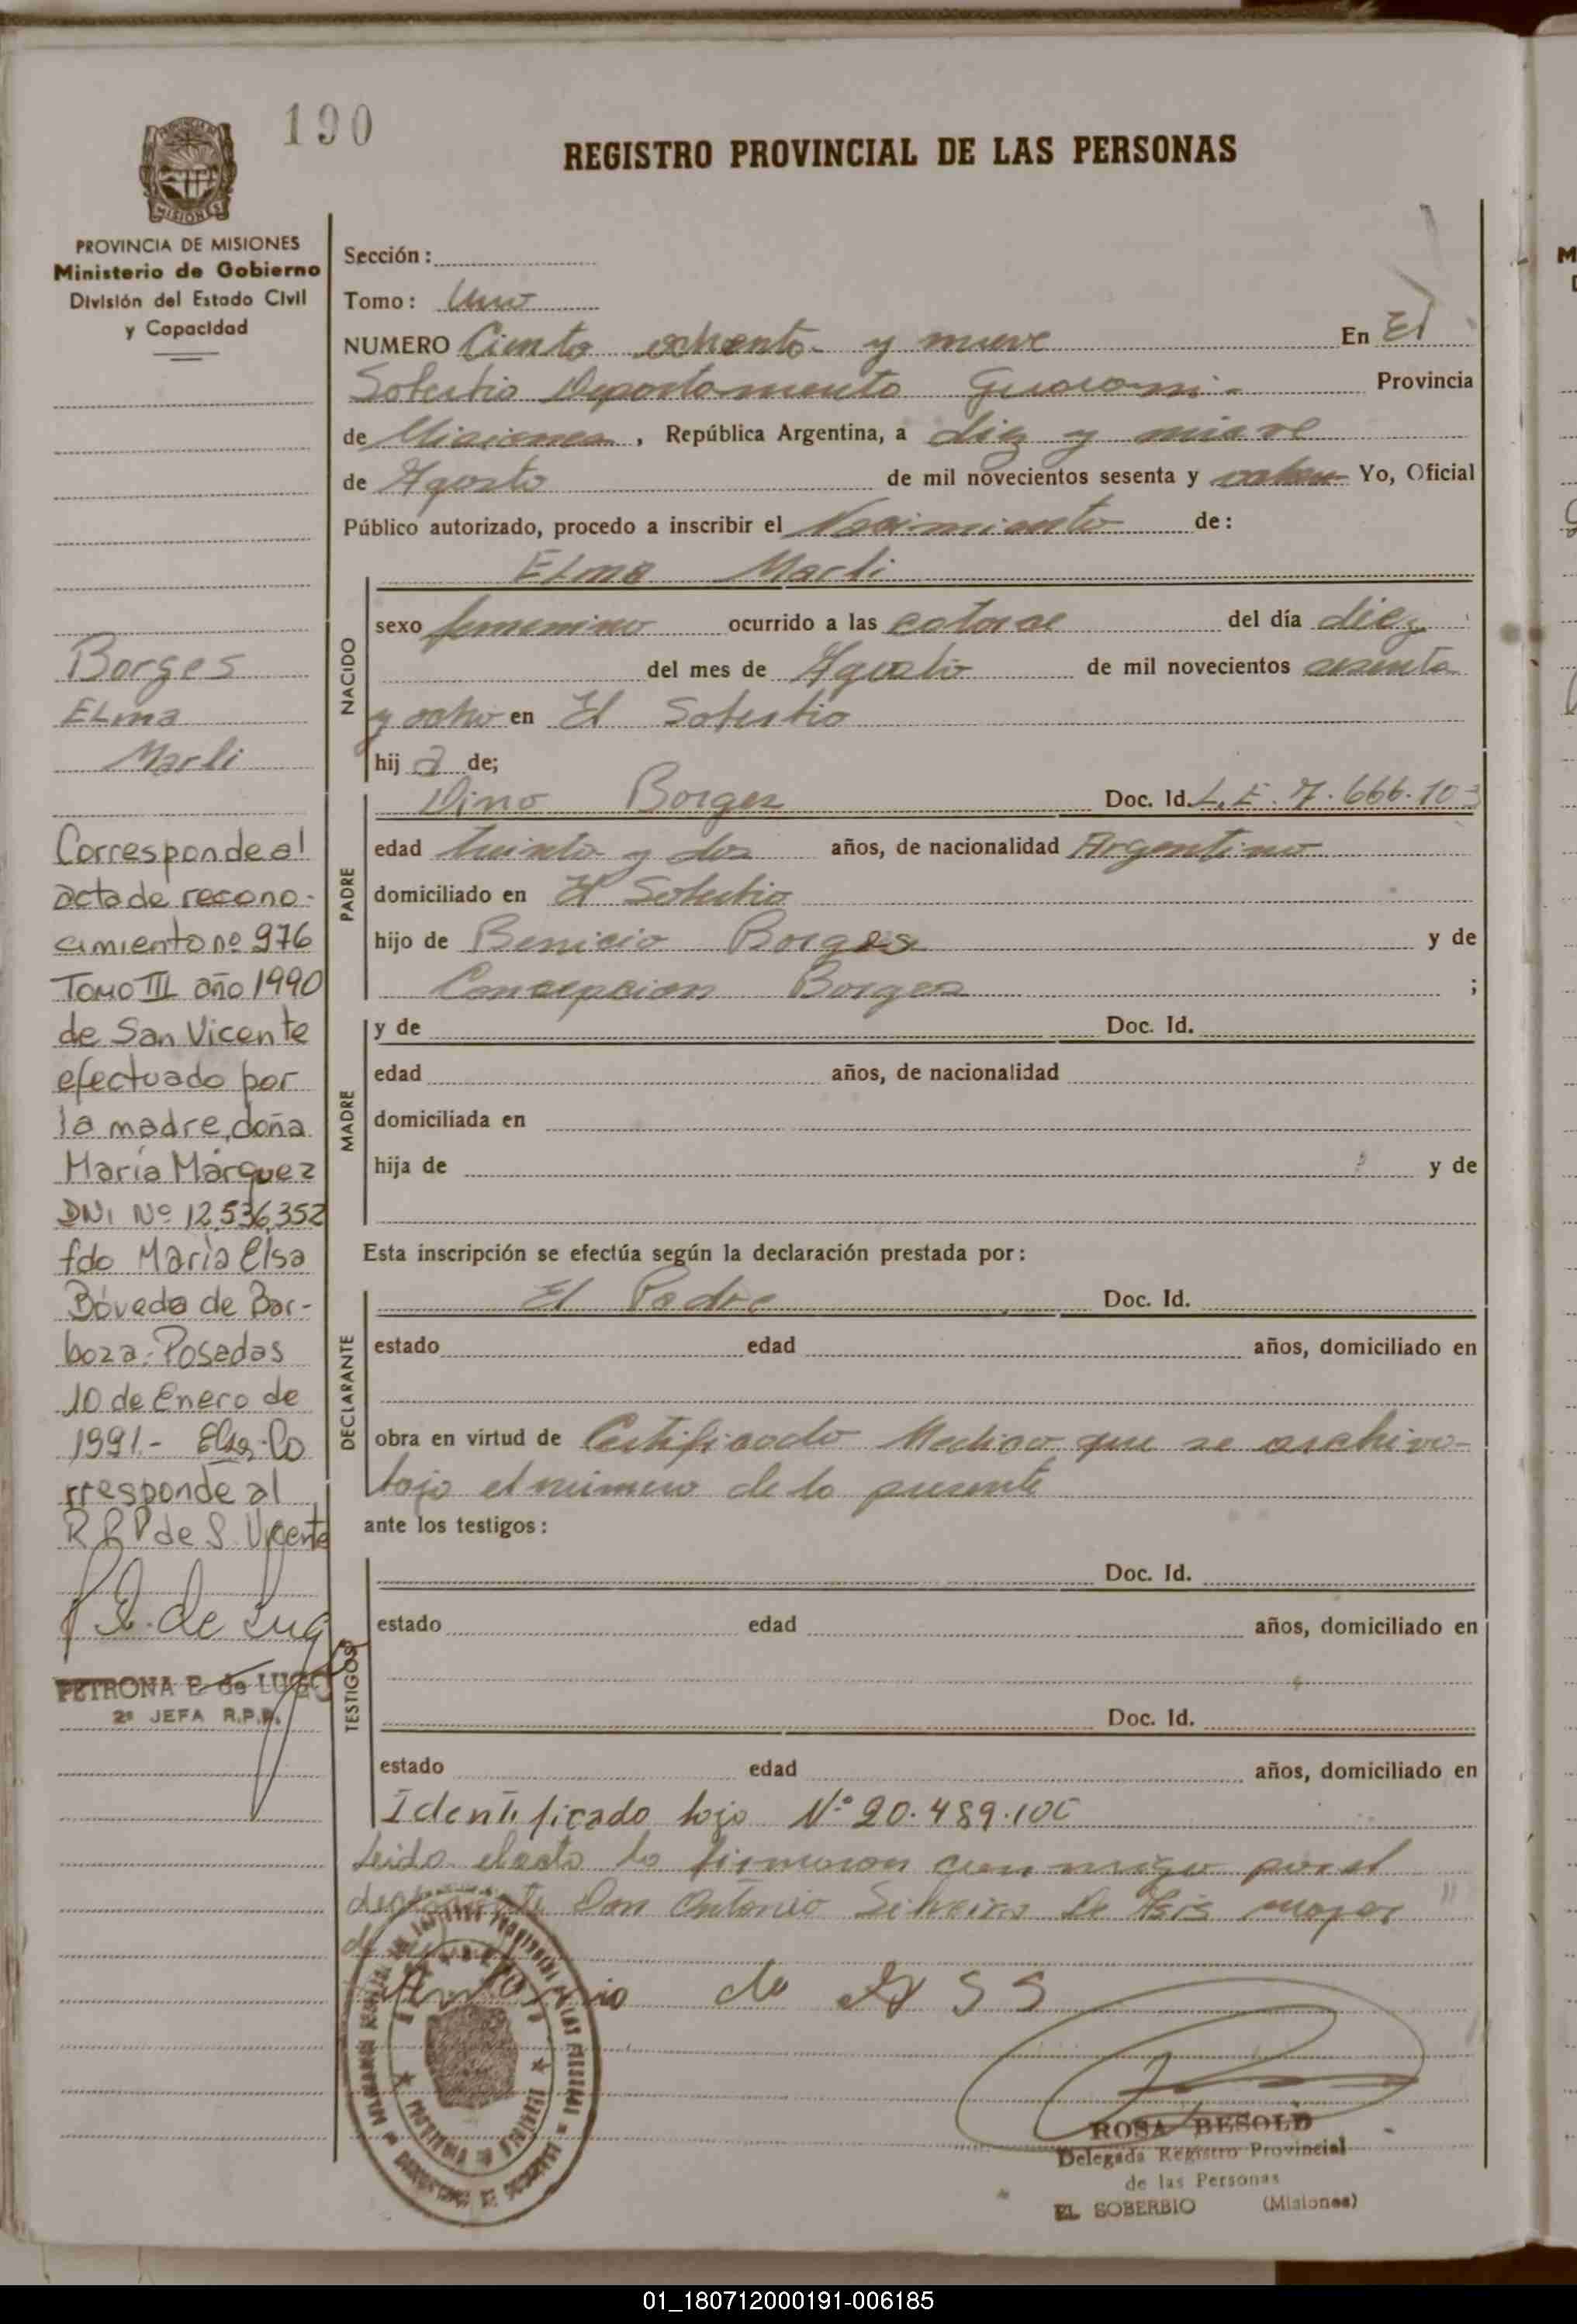 190
REGISTRO PROVINCIAL DE LAS PERSONAS
MISIONES
PROVINCIA DE MISIONES
Ministerio de Gobierno
División del Estado Civil
y Capacidad
Borges
ELma
Marli
Corresponde al
acta de recono-
cimiento nº 976
Tomo III año 1990
de San Vicente
efectuado por
la madre, doña
María Márquez
DNI Nº 12,536,352
fdo María Elsa
Bóveda de Bar-
boza. Posadas
10 de Enero de
1991.- Co
rresponde al
R.P.P de S. Vicente
PETRONA E de LUGO
2ª JEFA R.P.P.
Sección :
Tomo : Uno
NUMERO Ciento ochenta y nueve En El
Soberbio Departamento Guarani Provincia
de Misiones , República Argentina, a diez y nueve
de Agosto de mil novecientos sesenta y ocho Yo, Oficial
Público autorizado, procedo a inscribir el Nacimiento de :
ELma Marli
NACIDO
sexo femenino ocurrido a las catorce del día diez
del mes de Agosto de mil novecientos sesenta
y ocho en El Soberbio
hij a de;
PADRE
Dino Borges Doc. Id. L.E. 7.666.103
edad treinta y dos años, de nacionalidad Argentino
domiciliado en El Soberbio
hijo de Benicio Borges y de
Concepcion Borges ;
MADRE
y de Doc. Id.
edad años, de nacionalidad
domiciliada en
hija de y de
Esta inscripción se efectúa según la declaración prestada por :
DECLARANTE
El Padre Doc. Id.
estado edad años, domiciliado en
obra en virtud de Certificado Medico que se archiva
bajo el número de la presente
ante los testigos :
TESTIGOS
Doc. Id.
estado edad años, domiciliado en
Doc. Id.
estado edad años, domiciliado en
Identificado bajo Nº 20.489.10
Leida el acta la firmaron conmigo por el
declarante Don Antonio Silveira De Asis mayor
de
Antonio de ASS
ROSA BESOLD
Delegada Registro Provincial
de las Personas
EL SOBERBIO (Misiones)
01_180712000191-006185